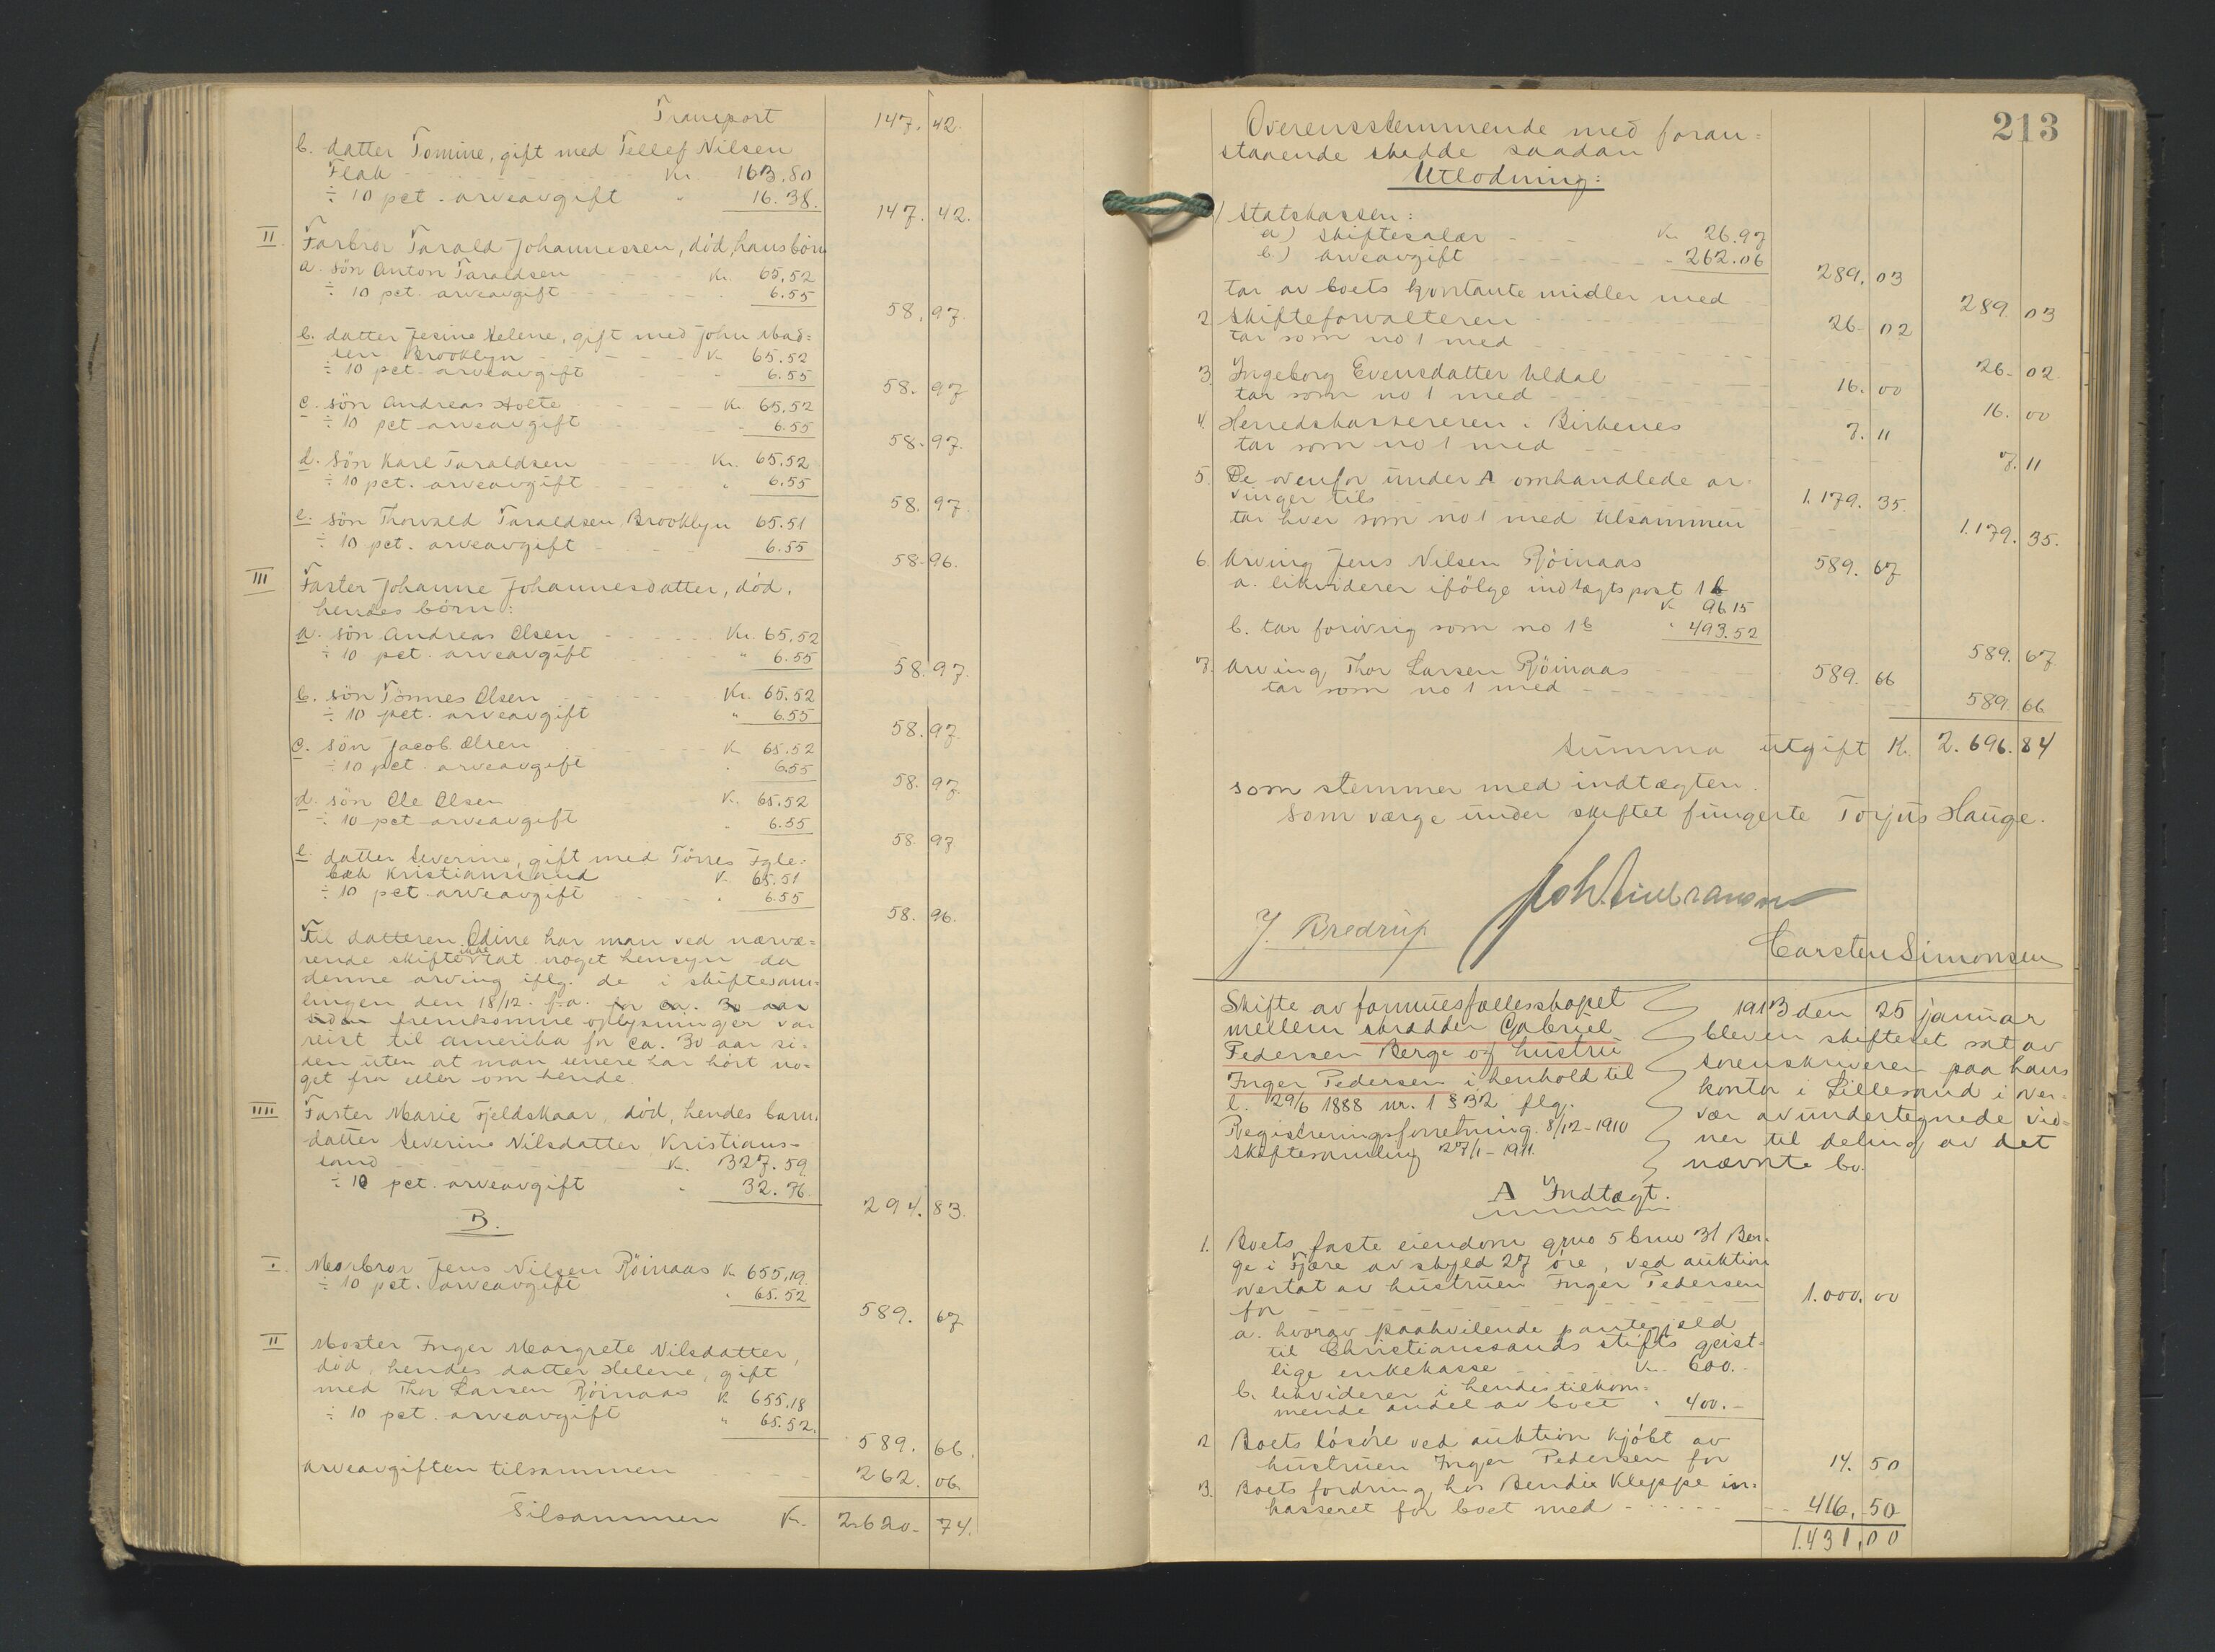 Transport 147. 42.
b. datter Tomine, gift med Tellef Nilsen
Flak Kr. 163.80
÷ 10 pct. arveavgift " 16.38.
147. 42.
II. Farbror Tarald Johannessen, död, hans börn
a. sön Anton Taraldsen Kr. 65.52
÷ 10 pct. arveavgift 6.55
58. 97.
b. datter Jesine Helene, gift med John Mad=
sen Brooklyn K. 65.52
÷ 10 pct. arveavgift 6.55
58. 97
c. sön Andreas Holte K. 65.52
÷ 10 pct arveavgift 6.55
58. 97.
d. sön Karl Taraldsen Kr. 65.52
÷ 10 pct. arveavgift 6.55
58. 97.
e. sön Thorvald Taraldsen, Brooklyn 65.51
÷ 10 pct. arveavgift 6.55
58. 96.
III Faster Johanne Johannesdatter, död.
hendes börn:
a. sön Andreas Olsen Kr. 65.52
÷ 10 pct. arveavgift " 6.55
58. 97.
b. sön Tönnes Olsen Kr. 65.52
÷ 10 pct. arveavgift " 6.55
58. 97.
c. sön Jacob Olsen K. 65.52
÷ 10 pct. arveavgift 6.55
58. 97
d. sön Ole Olsen K. 65.52
÷ 10 pct arveavgift 6.55
58. 97
e. datter Severine, gift med Törres Igle=
bæk Kristianssand K. 65.51
÷ 10 pct. arveavgift 6.55
58. 96.
Til datteren Odine har man ved nærvæ=
rende skifte ikke tat noget hensyn da
denne arving iflg. de i skiftesam=
lingen den 18/12. f.a. for ca. 30 aar
siden fremkomne oplysninger var
reist til Amerika for ca. 30 aar si=
den uten at man senere har hört no=
get fra eller om hende.
IIII Faster Marie Fjeldskaar, död, hendes barn:
datter Severine Nilsdatter Kristians=
sand K. 327.59
÷ 10 pct. arveavgift 32.76.
294. 83.
B.
I. Morbror Jens Nilsen Röinaas K. 655.19.
÷ 10 pct. arveavgift 65.52
589. 67
II Moster Inger Margrete Nilsdatter,
död, hendes datter Helene, gift
med Thor Larsen Röinaas K. 655.18
÷ 10 pct. arveavgift " 65.52.
589. 66.
Arveavgiften tilsammen 262. 06.
Tilsammen K. 2.620. 74.
213
Overensstemmende med foran=
staaende skedde saadan
Utlodning:
1) Statskassen:
a) skiftesalær K. 26.97
b.) arveavgift 262.06
289. 03
tar av boets kontante midler med 289. 03
2. Skifteforvalteren 26. 02
tar som no 1 med 26. 02
3. Ingeborg Evensdatter Uldal 16. 00
tar som no 1 med 16. 00
4. Herredskassereren i Birkenes 7. 11
tar som no 1 med 7. 11
5. De ovenfor under A omhandlede ar=
vinger tils 1.179. 35.
tar hver som no 1 med tilsammen 1.179. 35.
6. Arving Jens Nilsen Röinaas 589. 67
a. likviderer ifölge indtægtspost 1 b
K. 96.15
b. tar forövrig som no 1 b " 493.52
589. 67
7. Arving Thor Larsen Röinaas 589. 66
tar som no 1 med 589. 66
Summa utgift K. 2.696. 84
som stemmer med indtægten.
Som værge under skiftet fungerte Torjus Hauge.
J. Bredrup
Carsten Simonsen
Skifte av formuesfællesskapet
mellem skrædder Gabriel
Pedersen Berge og hustru
Inger Pedersen i henhold til
l. 29/6 1888 nr. 1 § 32 flg.
Registreringsforretning 8/12-1910
Skiftesamling 27/1-1911.
1913 den 25 januar
bleven skifteret sat av
sorenskriveren paa hans
kontor i Lillesand i over=
vær av undertegnede vid=
ner til deling av det
nævnte bo.
A Indtægt.
1. Boets faste eiendom gno 5 bno 31 Ber=
ge i Fjære av skyld 27 öre, ved auktion
overtat av hustruen Inger Pedersen
for 1.000. 00
a. hvorav paahvilende pantegjeld
til Christianssands stifts geist=
lige enkekasse K. 600.-
b. likviderer i hendes tilkom=
mende andel av boet " 400.-
2 Boets lösöre ved auktion kjöbt av
hustruen Inger Pedersen for 14. 50
3. Boets fordring hos Bendix Kleppe in=
kasseret for boet med 416. 50
1.431,00